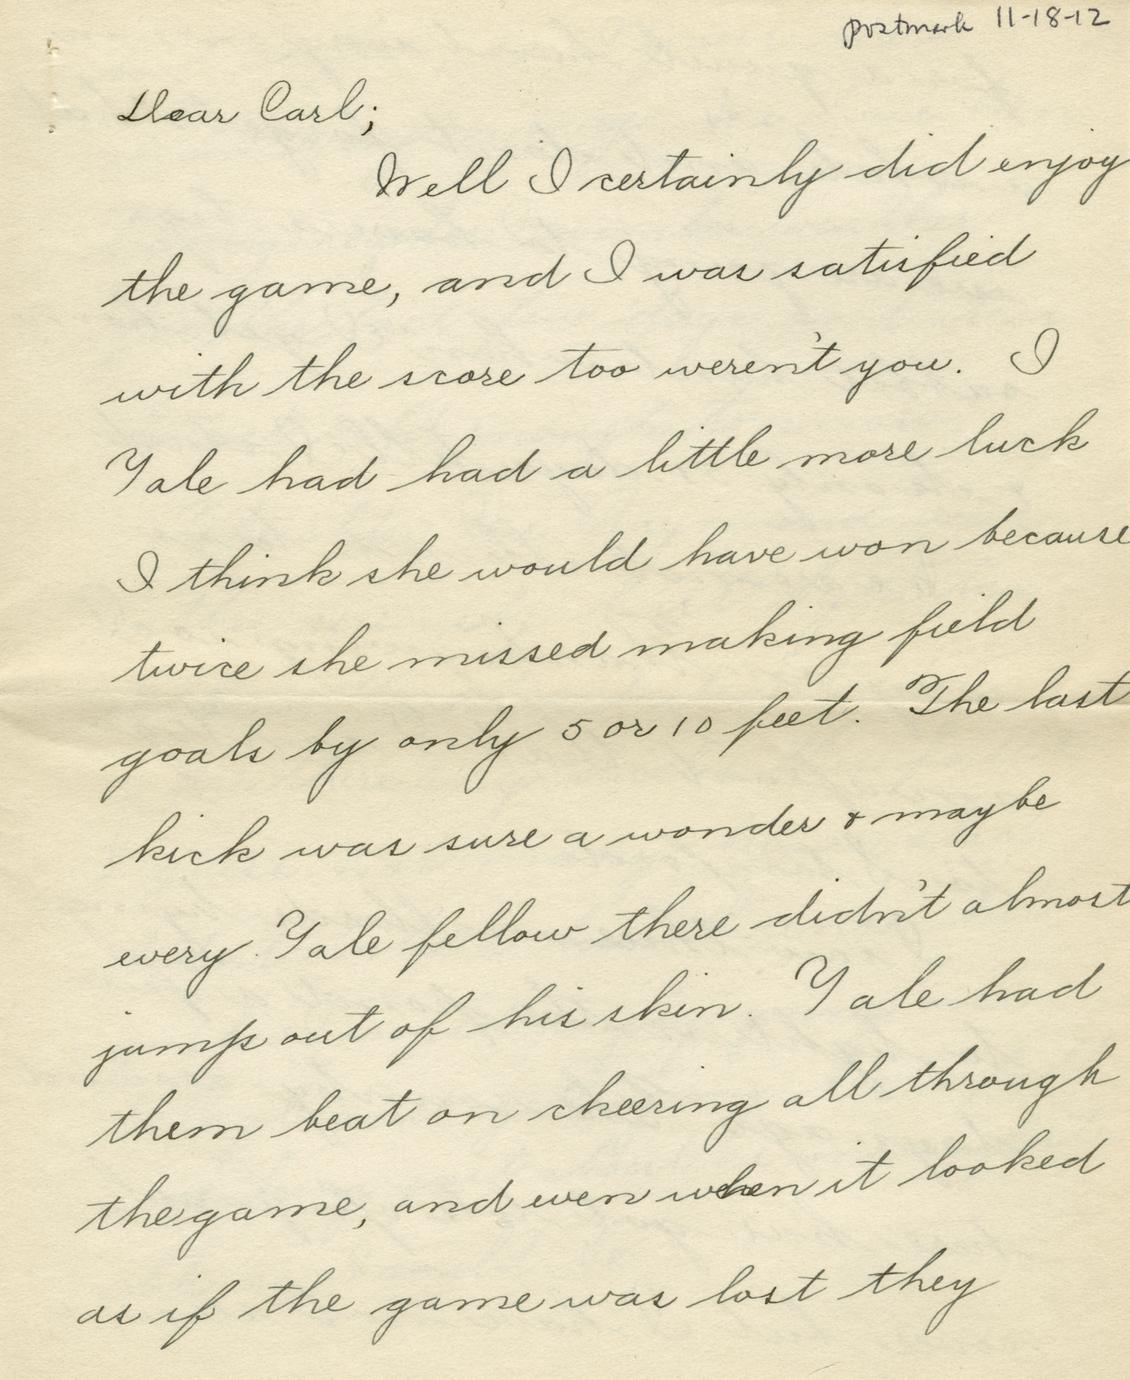 postmark 11-18-12
Dear Carl;
Well I certainly did enjoy
the game, and I was satisfied
with the score too weren't you. I
Yale had had a little more luck
I think she would have won because
twice she missed making field
goals by only 5 or 10 feet. The last
kick was sure a wonder & maybe
every Yale fellow there didn't almost
jump out of his skin. Yale had
them beat on cheering all through
the game, and even when it looked
as if the game was lost they